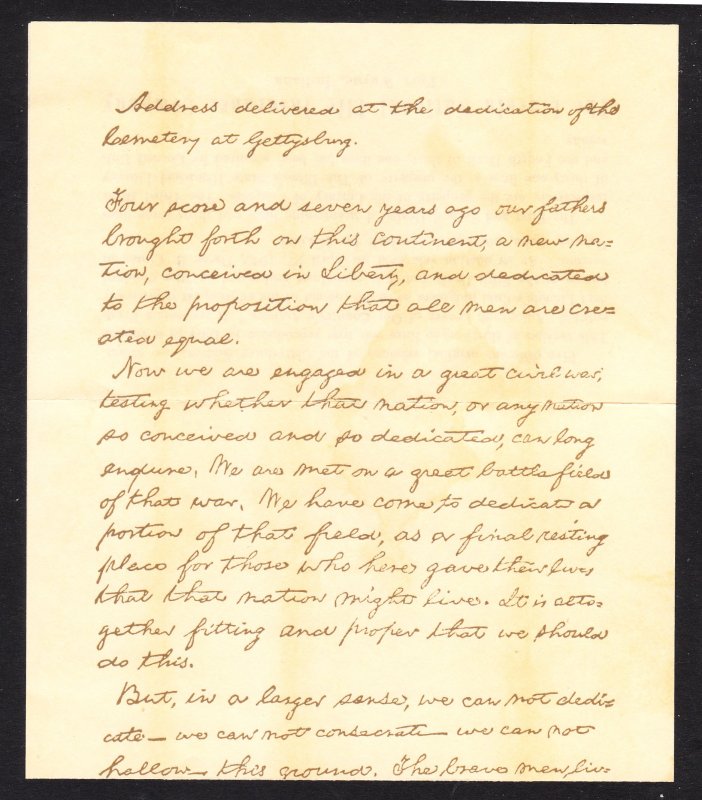 Address delivered at the dedication of the
Cemetery at Gettysburg.
Four score and seven years ago our fathers
brought forth on this continent, a new na=
tion, conceived in Liberty, and dedicated
to the proposition that all men are cre=
ated equal.
Now we are engaged in a great civil war,
testing whether that nation, or any nation
so conceived and so dedicated, can long
endure. We are met on a great battlefield
of that war. We have come to dedicate a
portion of that field, as a final resting
place for those who here gave their lives
that that nation might live. It is alto=
gether fitting and proper that we should
do this.
But, in a larger sense, we can not dedi=
cate — we can not consecrate — we can not
hallow — this ground. The brave men, liv=